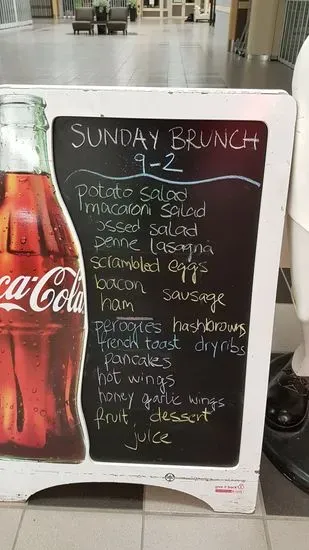 SUNDAY BRUNCH
9-2
potato salad
macaroni salad
ossed salad
penne lasagna
scrambled eggs
bacon
sausage
ham
perogies hashbrowns
french toast dry ribs
pancakes
hot wings
honey garlic wings
fruit dessert
juice
ca-Cola